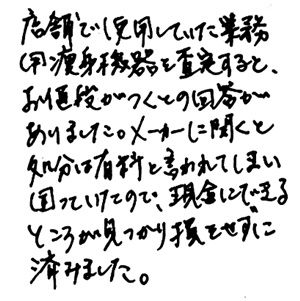 店舗で使用していた業務
用痩身機器を査定すると、
お値段がつくとの回答が
ありました。メーカーに聞くと
処分は有料と言われてしまい
困っていたので、現金にできる
ところが見つかり損をせずに
済みました。